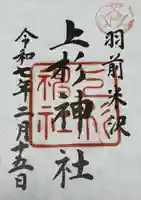 羽前米沢
上杉神社
令和七年二月十五日